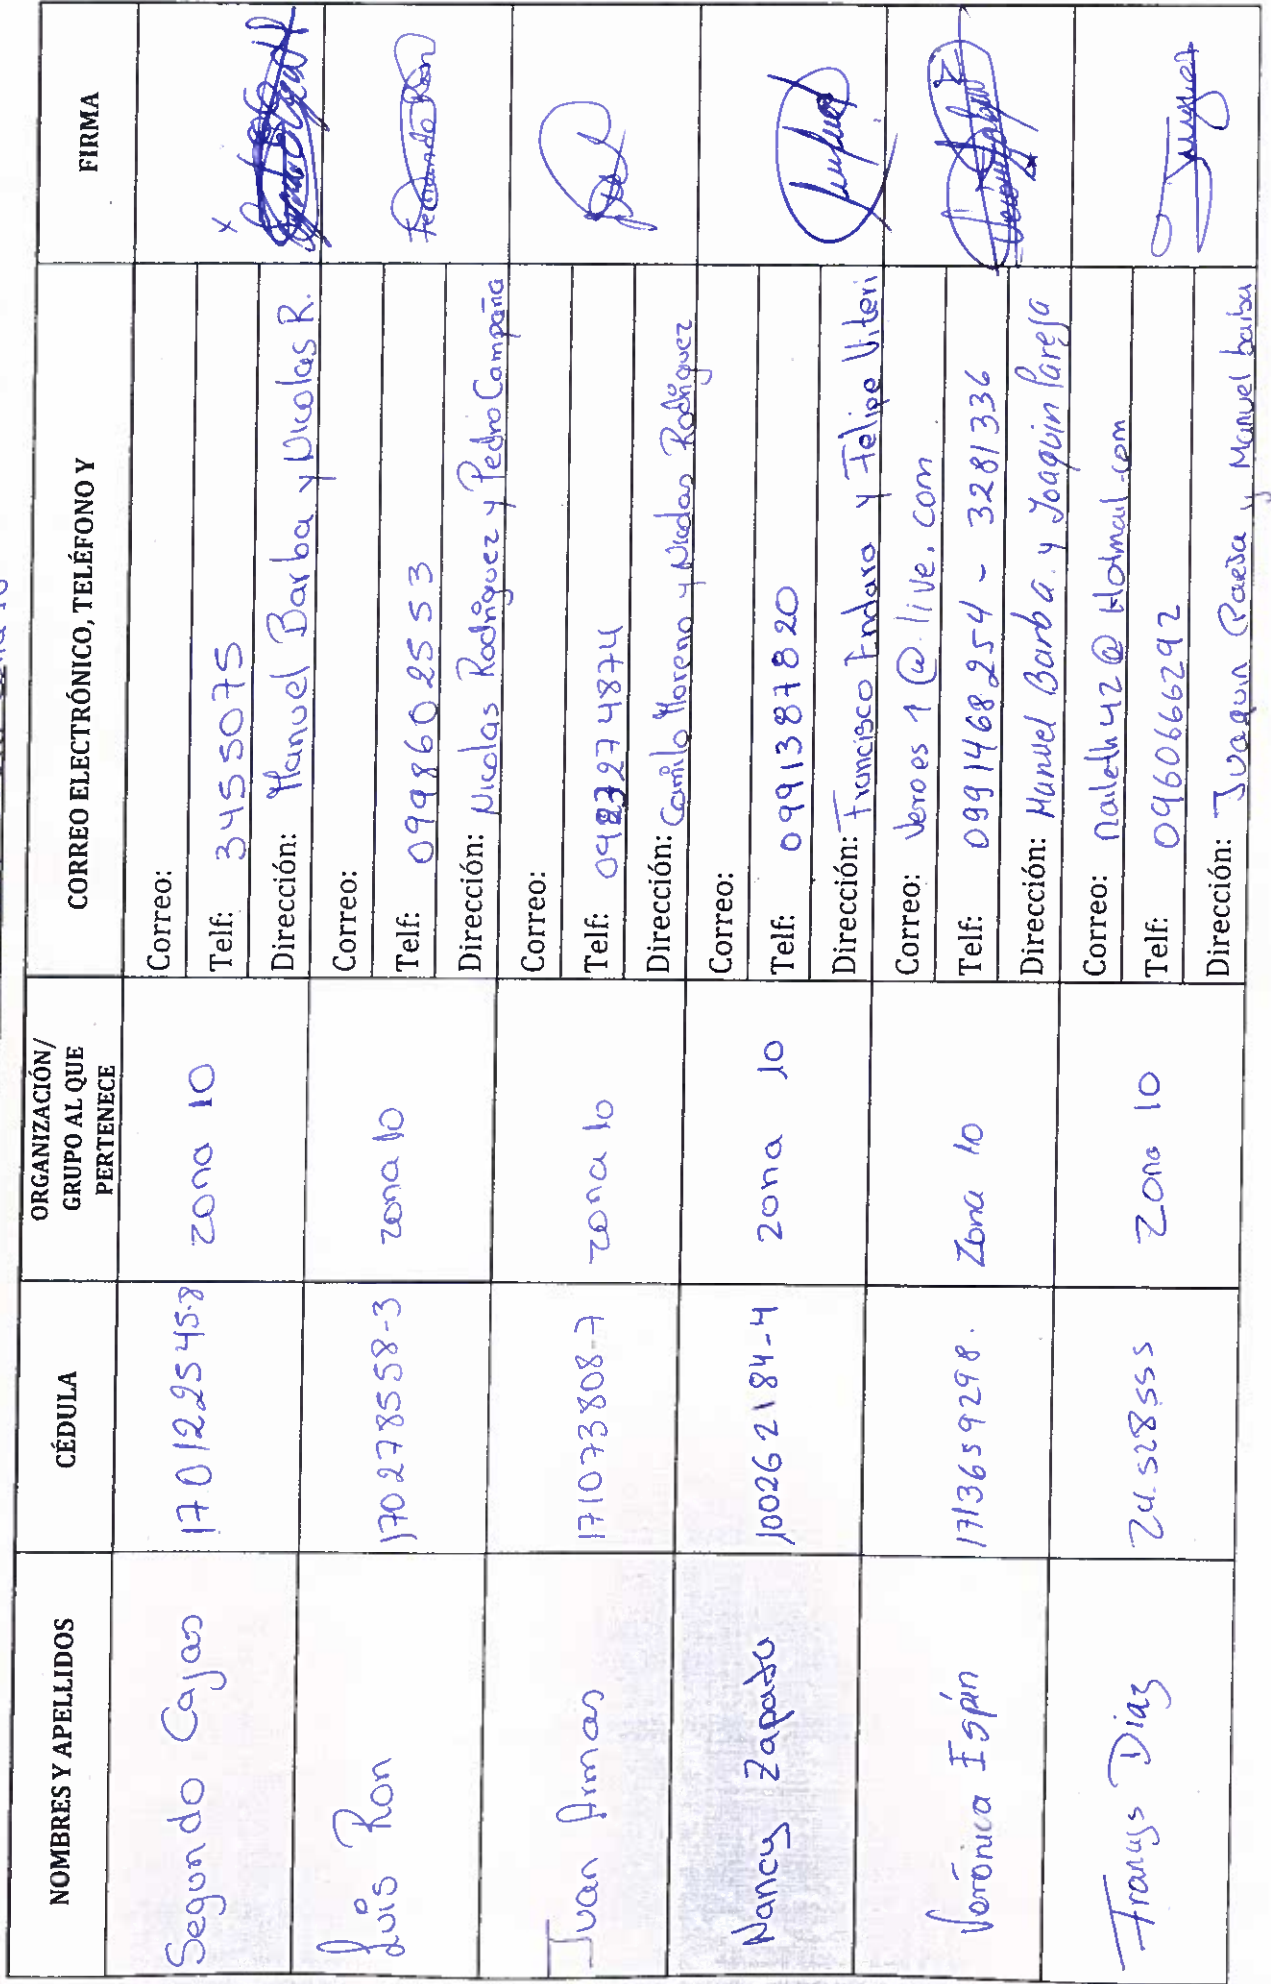 NOMBRES Y APELLIDOS
CÉDULA
ORGANIZACIÓN/
GRUPO AL QUE
PERTENECE
CORREO ELECTRÓNICO, TELÉFONO Y
FIRMA
Segundo Cajas
170122545-8
zona 10
Correo:
Telf: 3455075
Dirección: Manuel Barba y Nicolas R.
x
Luis Ron
170278558-3
zona 10
Correo:
Telf: 0998602553
Dirección: Nicolas Rodriguez y Pedro Campaña
Fernando Ron
Juan Armas
171073808-7
zona 10
Correo:
Telf:
Dirección: Camilo Moreno y Nicolas Rodriguez
Nancy Zapata
100262184-4
zona 10
Correo:
Telf: 0991387820
Dirección: Francisco Endara y Felipe Viteri
Verónica Espín
1713659298.
Zona 10
Correo: veroes1@live.com
Telf: 0991468254 - 3281336
Dirección: Manuel Barba y Joaquin Pareja
Franyys Diaz
24.528555
Zona 10
Correo: nailethu2@Hotmail.com
Telf: 0960666292
Dirección: Juaquin Pareja y Manuel barba